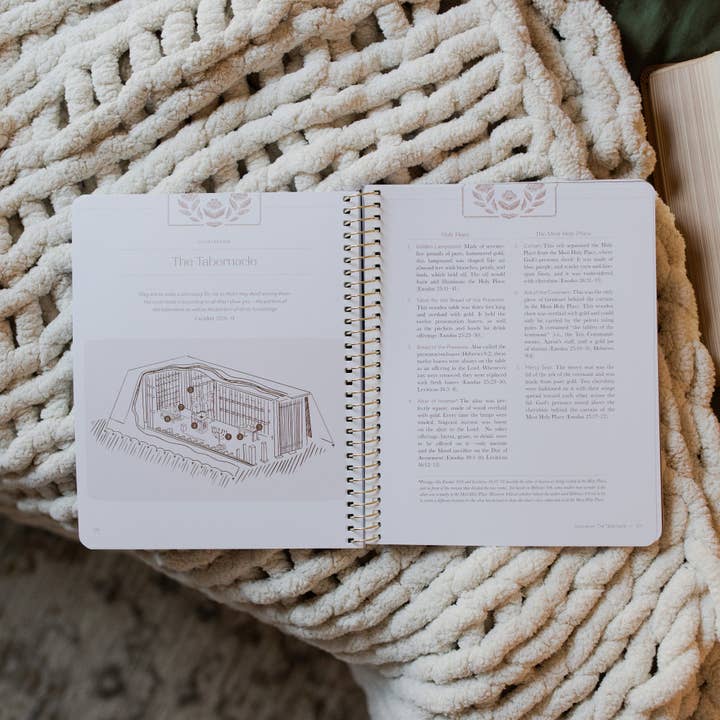 The Tabernacle
Holy Place
1. Golden Lampstand: Made of seventy-
five pounds of pure, hammered gold,
this lampstand was shaped like an
almond tree with branches, petals, and
buds, which held oil. The oil would
burn and illuminate the Holy Place
(Exodus 25:31-41).
2. Table for the Bread of the Presence:
This wooden table was three feet long
and overlaid with gold. It held the
twelve presentation loaves, as well
as the pitchers and bowls for drink
offerings (Exodus 25:23-30).
3. Bread of the Presence: Also called the
presentation loaves (Hebrews 9:2), these
twelve loaves were always on the table
as an offering to the Lord. Whenever
they were removed, they were replaced
with fresh loaves (Exodus 25:23-30,
Leviticus 24:5-9).
4. Altar of Incense*: The altar was per-
fectly square, made of wood overlaid
with gold. Every time the lamps were
tended, fragrant incense was burnt
on the altar to the Lord. No other
offerings, burnt, grain, or drink were
to be offered on it—only incense
and the blood sacrifice on the Day of
Atonement (Exodus 30:1-10, Leviticus
16:12-13).
The Most Holy Place
5. Curtain: This veil separated the Holy
Place from the Most Holy Place, where
God's presence dwelt. It was made of
blue, purple, and scarlet yarn and fine-
spun linen, and it was embroidered
with cherubim (Exodus 26:31-33).
6. Ark of the Covenant: This was the only
piece of furniture behind the curtain
in the Most Holy Place. This wooden
chest was overlaid with gold and could
only be carried by the priests using
poles. It contained "the tablets of the
testimony"
7. Mercy Seat: The mercy seat was the
lid of the ark of the covenant and was
made from pure gold. Two cherubim
were fashioned on it with their wings
spread toward each other across the
lid. God's presence rested above the
cherubim behind the curtain of the
Most Holy Place (Exodus 25:17-22).